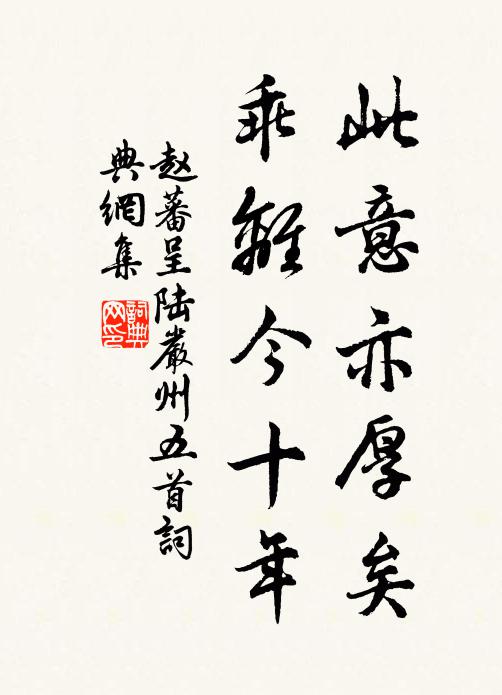 此意亦厚矣
乖離今十年
赵蕃呈陆嚴州五首詞
典網集
詞典网印